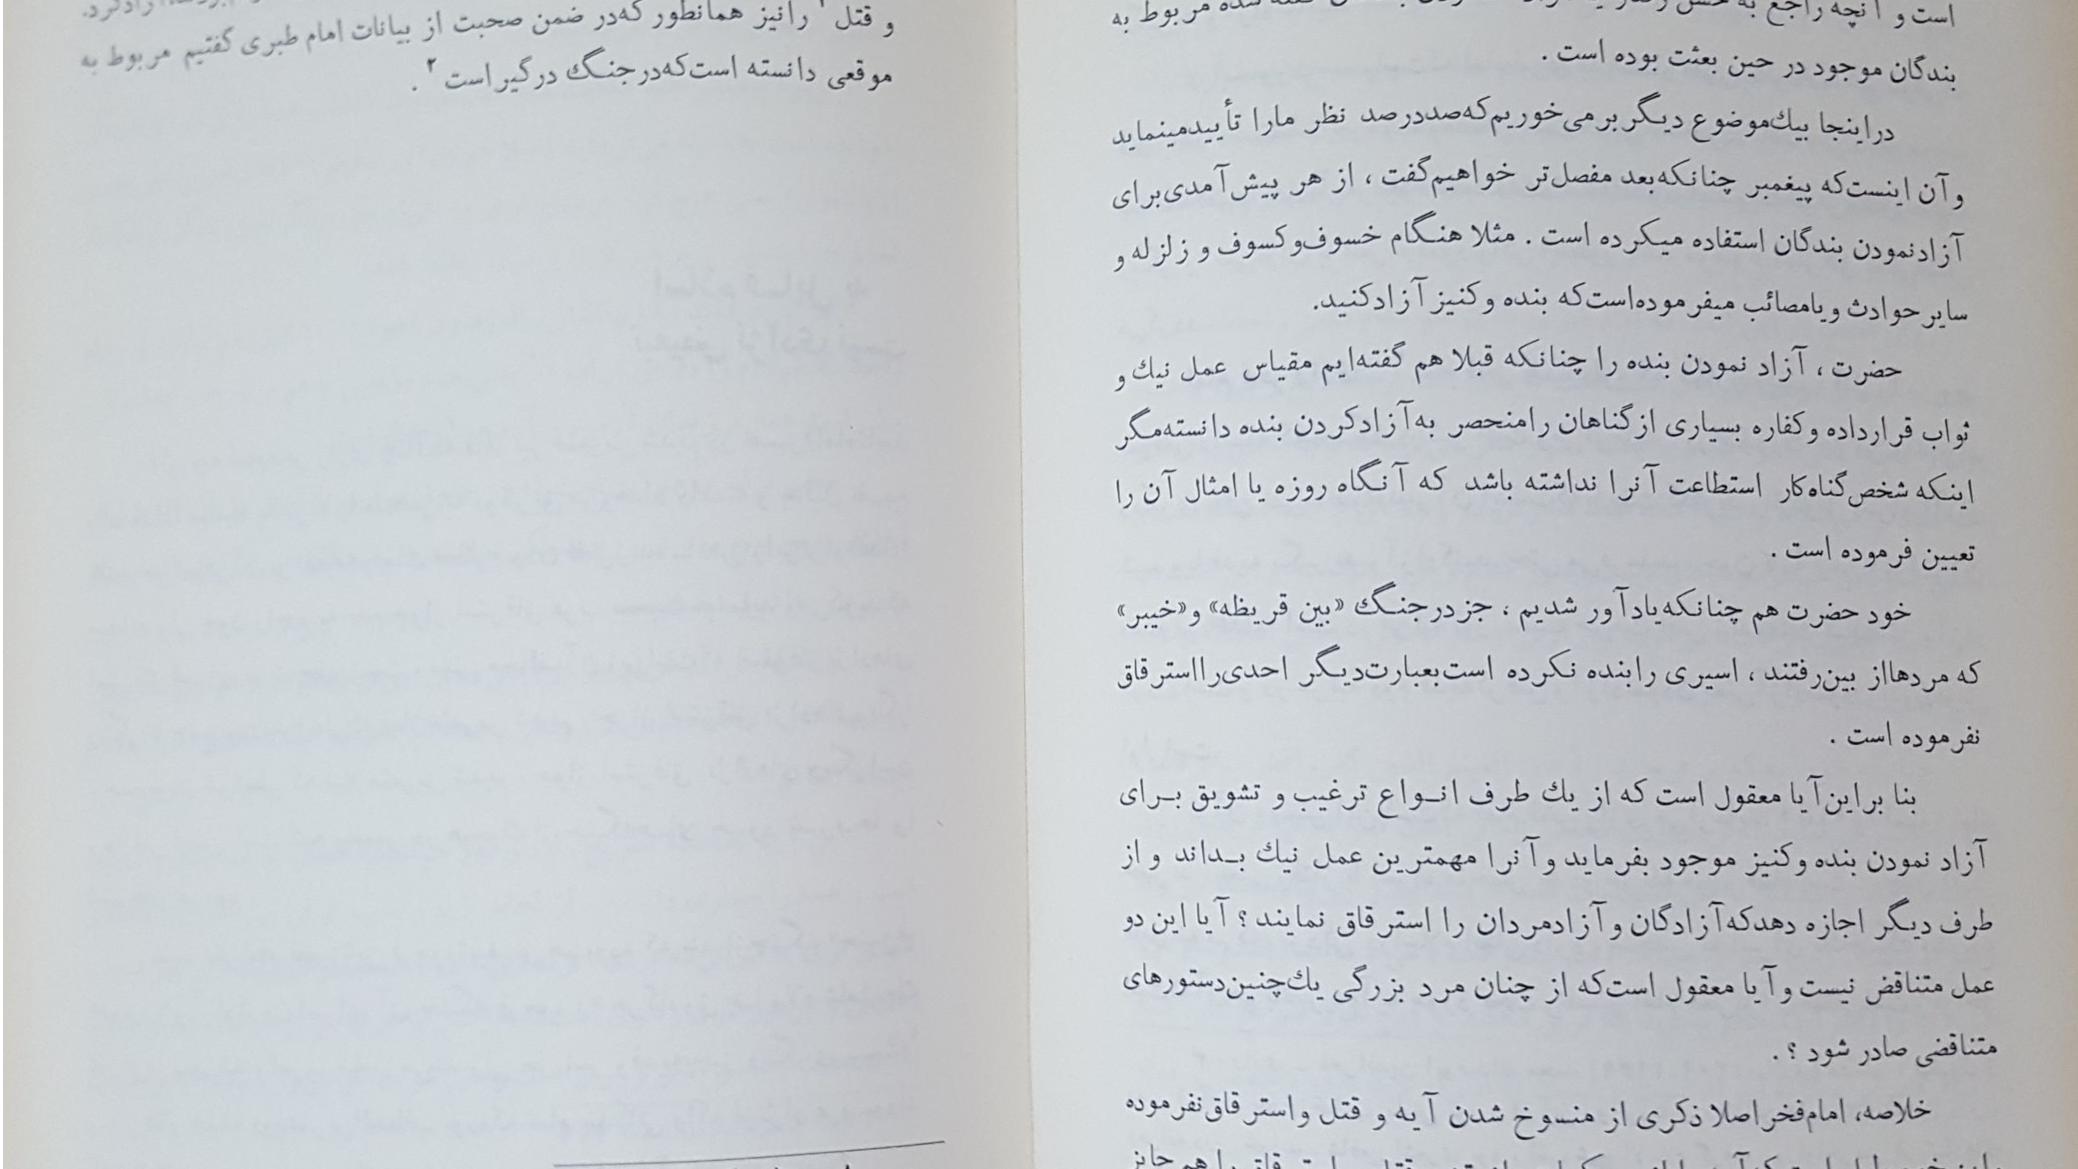 است و آنچه راجع به حسن
مربوط به
بندگان موجود در حین بعثت بوده است .
در اینجا بیك موضوع دیگر برمی‌خوریم که صددرصد نظر مارا تأیید مینماید
و آن اینست که پیغمبر چنانکه بعد مفصل‌تر خواهیم گفت ، از هر پیش‌آمدی برای
آزاد نمودن بندگان استفاده میکرده است . مثلا هنگام خسوف و کسوف و زلزله و
سایر حوادث و یا مصائب میفرموده است که بنده و کنیز آزاد کنید.
حضرت ، آزاد نمودن بنده را چنانکه قبلا هم گفته‌ایم مقیاس عمل نیك و
ثواب قرار داده و کفاره بسیاری از گناهان را منحصر به آزاد کردن بنده دانسته مگر
اینکه شخص گناه‌کار استطاعت آنرا نداشته باشد که آنگاه روزه یا امثال آن را
تعیین فرموده است .
خود حضرت هم چنانکه یادآور شدیم ، جز در جنگ «بین قریظه» و «خیبر»
که مردها از بین رفتند ، اسیری را بنده نکرده است بعبارت دیگر احدی را استرقاق
نفرموده است .
بنا بر این آیا معقول است که از یك طرف انواع ترغیب و تشویق برای
آزاد نمودن بنده و کنیز موجود بفرماید و آنرا مهمترین عمل نیك بداند و از
طرف دیگر اجازه دهد که آزادگان و آزادمردان را استرقاق نمایند ؟ آیا این دو
عمل متناقض نیست و آیا معقول است که از چنان مرد بزرگی یك چنین دستورهای
متناقضی صادر شود ؟ .
خلاصه، امام فخر اصلا ذکری از منسوخ شدن آیه و قتل و استرقاق نفرموده
را هم جایز
و قتل ۱ را نیز همانطور که در ضمن صحبت از بیانات امام طبری گفتیم مربوط به
موقعی دانسته است که در جنگ درگیر است ۲ .